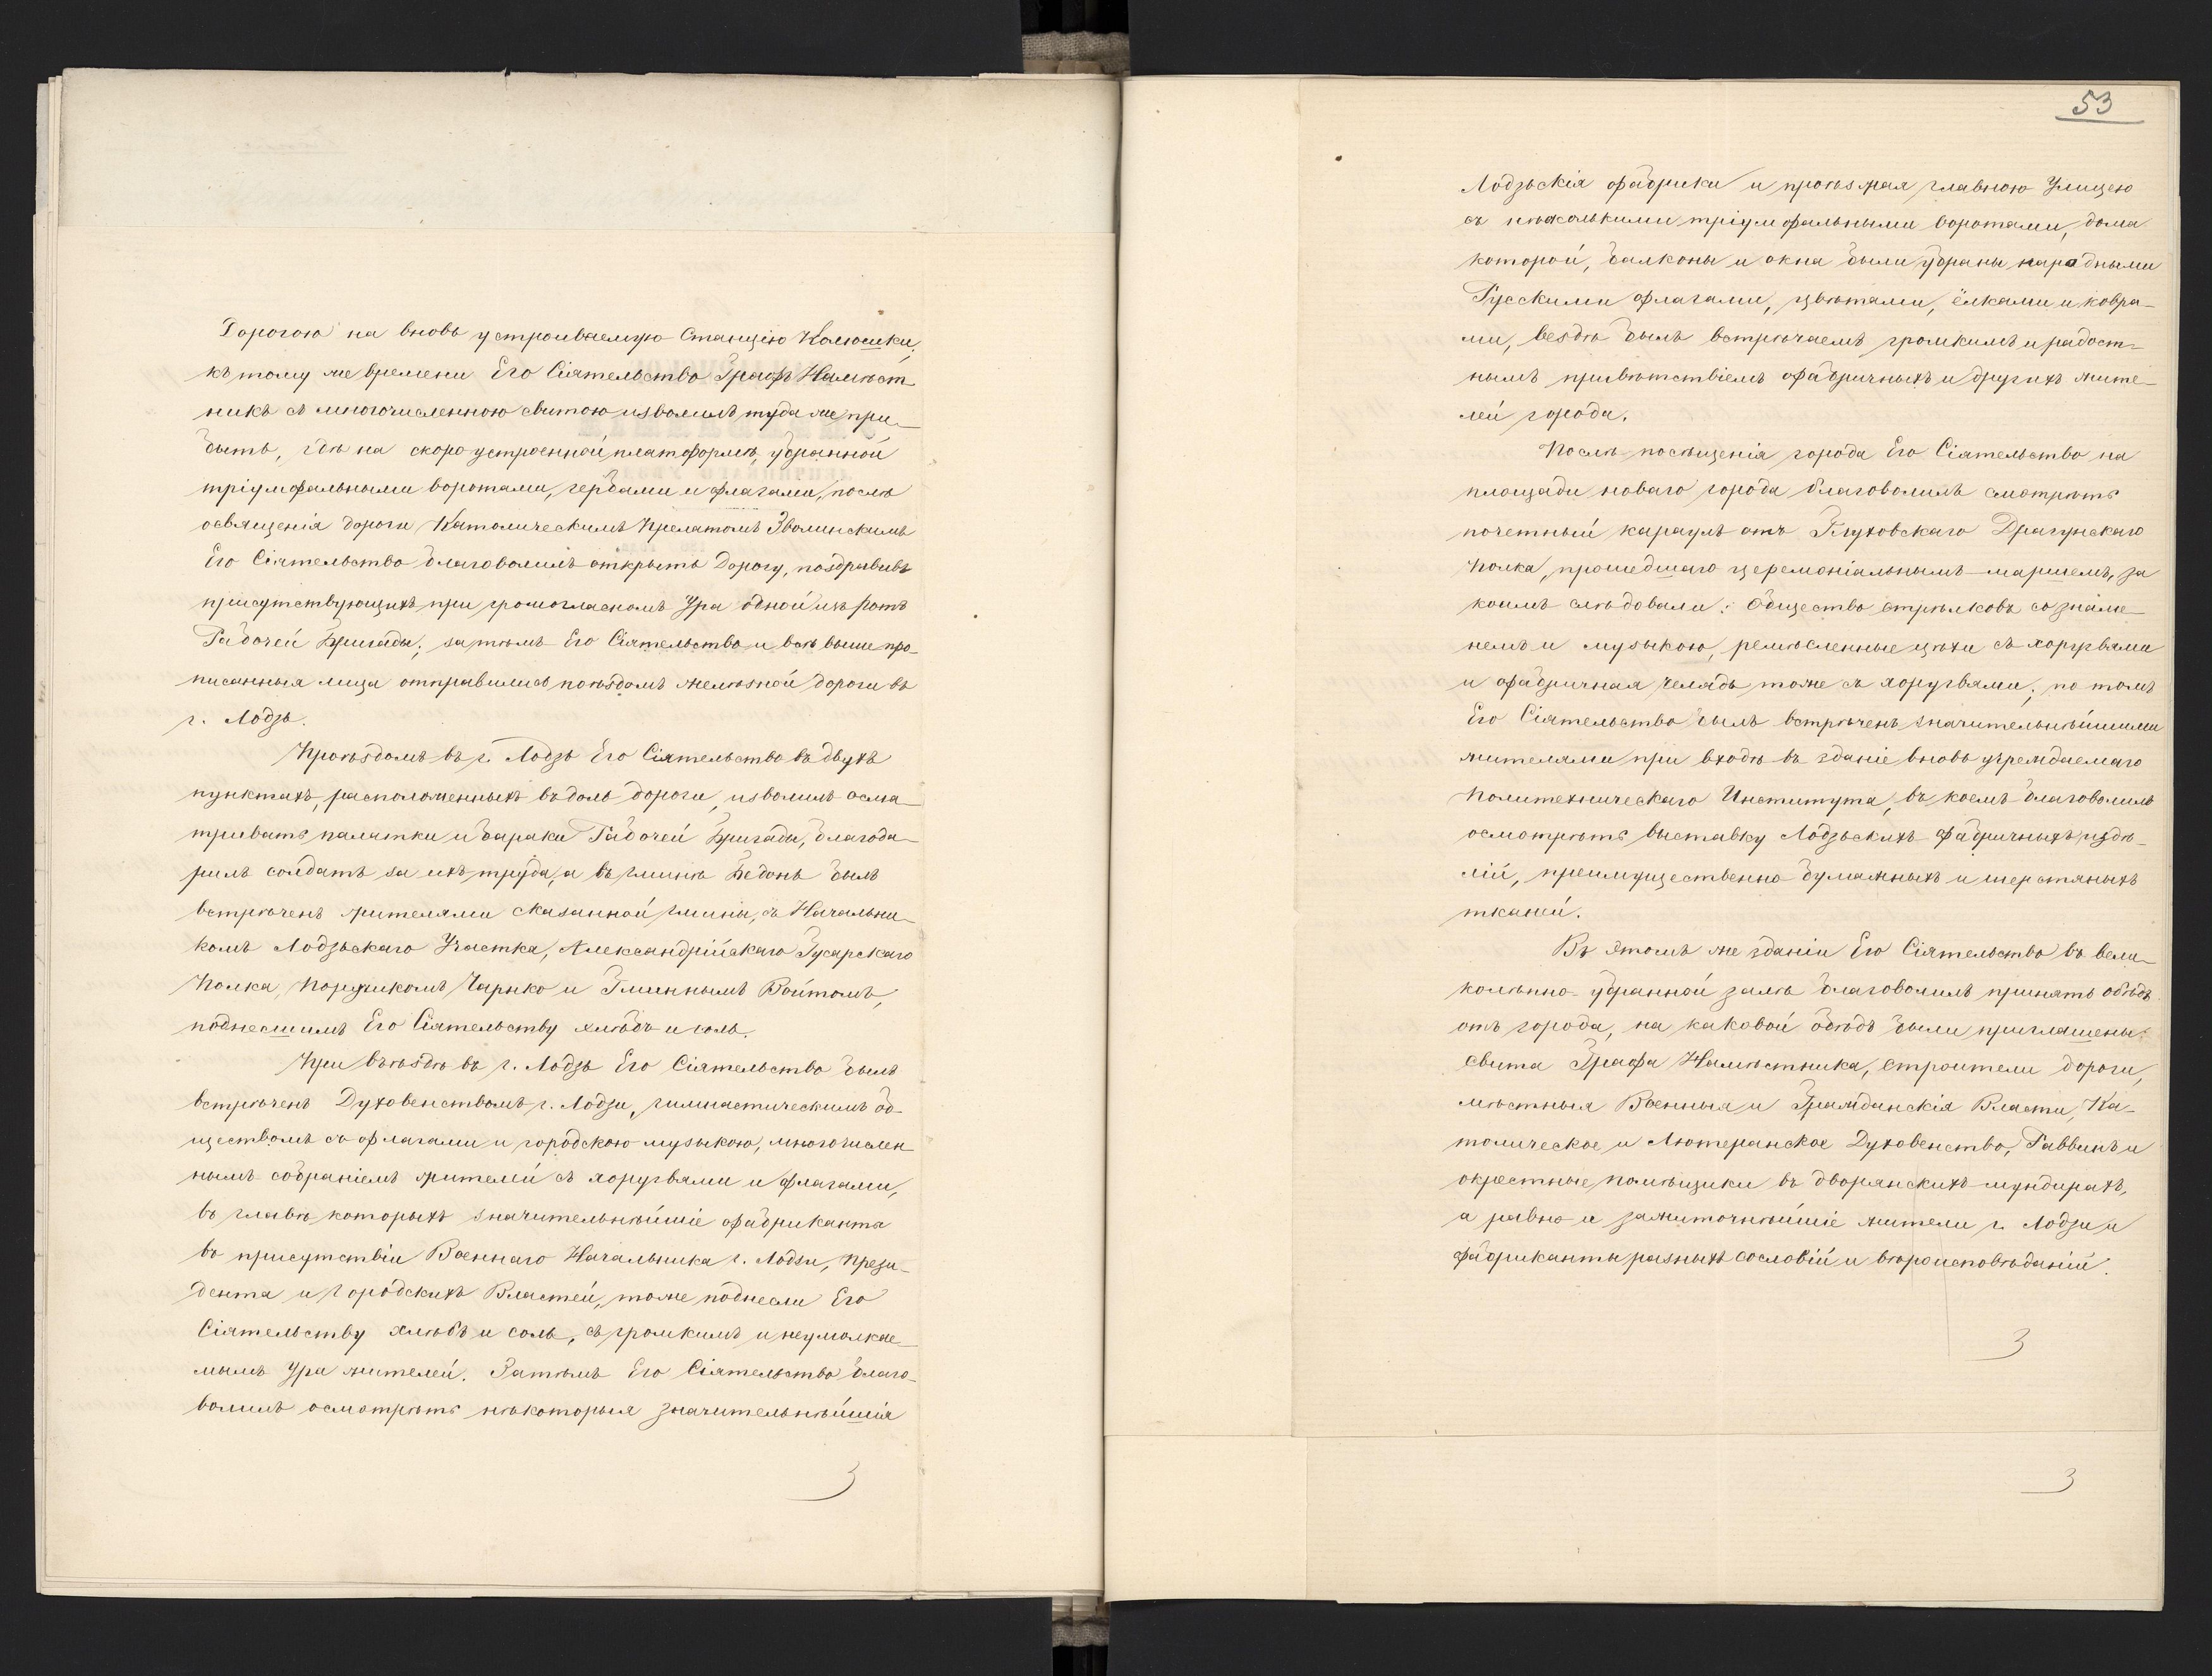 Дорогою на вновь устроиваемую Станцію Колюшки,
къ тому же времени Его Сіятельство Графъ Намѣст-
никъ съ многочисленною свитою изволилъ туда же при-
быть, гдѣ на скоро устроенной платформѣ, убранной
тріумфальными воротами, гербами и флагами, послѣ
освященія дороги Католическимъ Прелатомъ Зволинскимъ
Его Сіятельство благоволилъ открыть Дорогу, поздравивъ
присутствующихъ при громогласномъ Ура одной изъ ротъ
Рабочей Бригады; затѣмъ Его Сіятельство и всѣ выше про-
писанныя лица отправились поѣздомъ желѣзной дороги въ
г. Лодзь.
Проѣздомъ въ г. Лодзь Его Сіятельство въ двухъ
пунктахъ, расположенныхъ въ доль дороги, изволилъ осма-
тривать палатки и бараки Рабочей Бригады, благода-
рилъ солдатъ за ихъ труда, а въ гминѣ Бедонь былъ
встрѣченъ жителями сказанной гмины, съ Начальни-
комъ Лодзьскаго Участка, Александрійскаго Гусарскаго
Полка, Поручикомъ Чарнко и Гминнымъ Войтомъ,
поднесшимъ Его Сіятельству хлѣбъ и соль.
При въѣздѣ въ г. Лодзь Его Сіятельство былъ
встрѣченъ Духовенствомъ г. Лодзи, гимнастическимъ об-
ществомъ съ флагами и городскою музыкою, многочислен-
нымъ собраніемъ жителей съ хоругвями и флагами,
въ главѣ которыхъ значительнѣйшіе фабриканты
въ присутствіи Военнаго Начальника г. Лодзи, Прези-
дента и Городскихъ Властей, тоже поднесли Его
Сіятельству хлѣбъ и соль, съ громкимъ и неумолкае-
мымъ Ура жителей. Затѣмъ Его Сіятельство благо-
волилъ осмотрѣть нѣкоторыя значительнѣйшія
53
Лодзьскія фабрики и проѣзжая главною Улицею
съ нѣсколькими тріумфальными воротами, дома
которой, балконы и окна были убраны народными
Русскими флагами, цвѣтами, ёлками и ковра-
ми, вездѣ былъ встрѣчаемъ громкимъ и радост-
нымъ привѣтствіемъ фабричныхъ и другихъ жите-
лей города.
Послѣ посѣщенія города Его Сіятельство на
площади новаго города благоволилъ смотрѣть
почетный караулъ отъ Глуховскаго Драгунскаго
Полка, прошедшаго церемоніальнымъ маршемъ, за
коимъ слѣдовали: Общество стрѣлковъ со знаме-
немъ и музыкою, ремѣсленные цѣхи съ хоругвями
и фабричная челядь тоже съ хоругвями; по томъ
Его Сіятельство былъ встрѣченъ значительнѣйшими
жителями при входѣ въ зданіе вновь учреждаемаго
Политехническаго Института, въ коемъ благоволилъ
осмотрѣть выставку Лодзьскихъ фабричныхъ издѣ-
лій, преимущественно бумажныхъ и шерстяныхъ
тканей.
Въ этомъ же зданіи Его Сіятельство въ вели-
колѣпно-убранной залѣ благоволилъ принять обѣдъ
отъ города, на каковой обѣдъ были приглашены:
свита Графа Намѣстника, строители дороги,
мѣстныя Военныя и Гражданскія Власти, Ка-
толическое и Лютеранское Духовенство, Раввинъ и
окрестные помѣщики въ дворянскихъ мундирахъ,
а равно и зажиточнѣйшіе жители г. Лодзи и
фабриканты разныхъ сословій и вѣроисповѣданій.